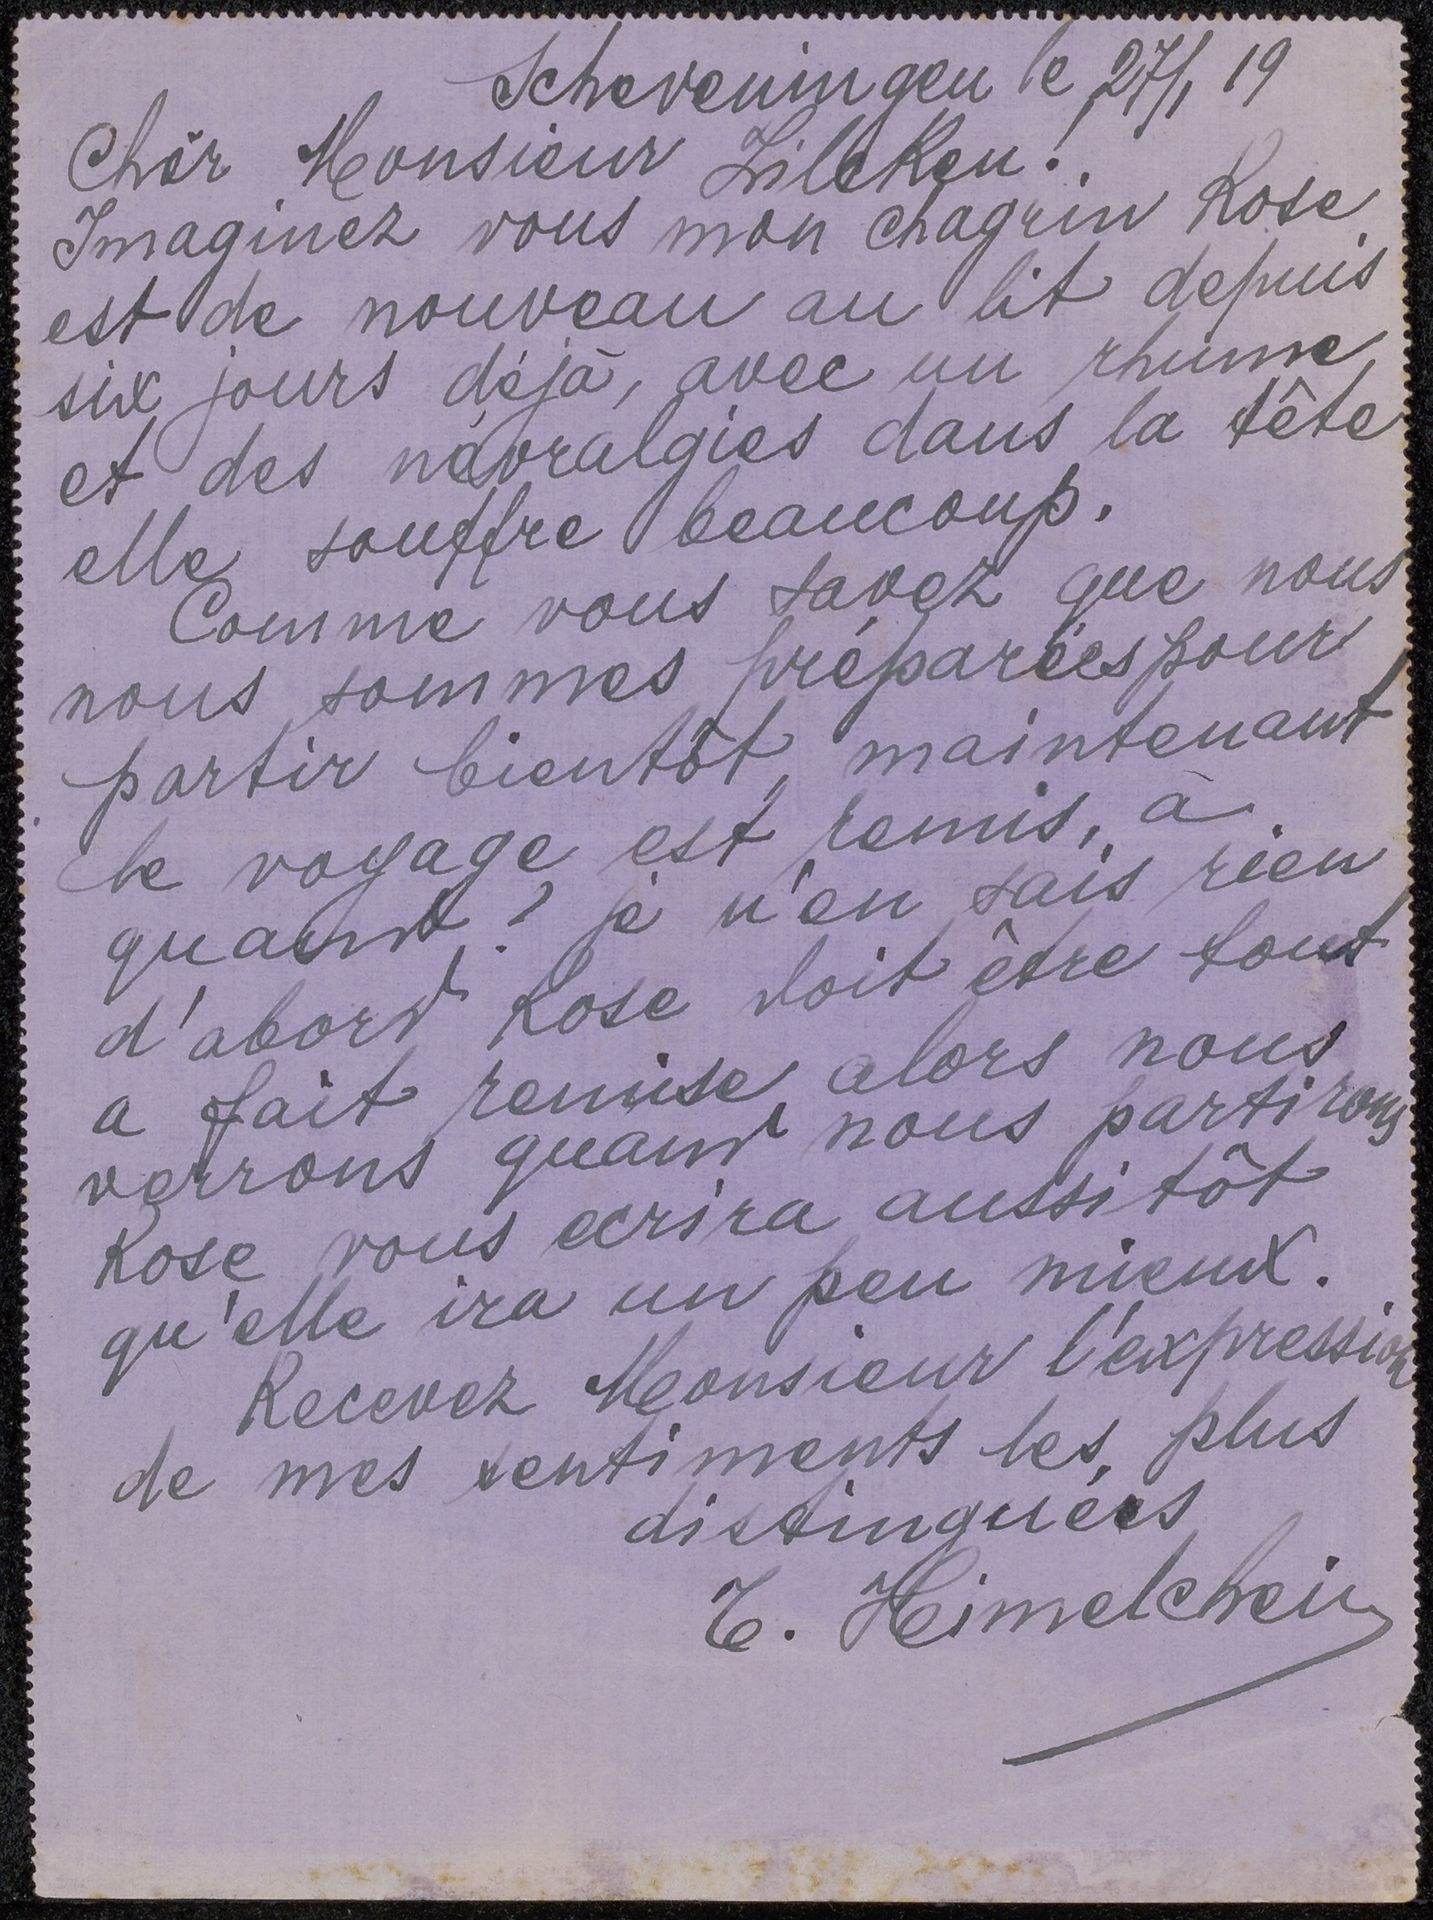 Scheveningen le 27/1 19
Chèr Monsieur Zilcken!
Imaginez vous mon chagrin Rose
est de nouveau au lit depuis
six jours déjà, avec un rhume
et des névralgies dans la tête
elle souffre beaucoup.
Comme vous savez que nous
nous sommes préparées pour
partir bientôt, maintenant
le voyage est remis, à
quand? je n'en sais rien
d'abord Rose doit être tout
a fait remise alors nous
verrons quand nous partirons
Rose vous ecrira aussitôt
qu'elle ira un peu mieux.
Recevez Monsieur l'expression
de mes sentiments les plus
distinguées
T. Heimelchein